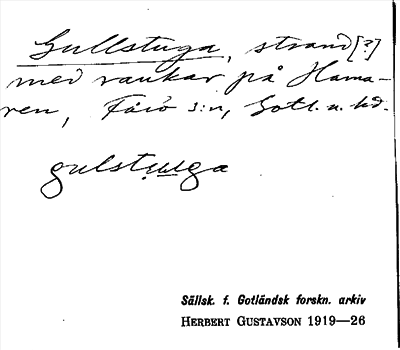 Gullstuga, strand [?]
med raukar på Hama-
ren, Fårö s:n, Gotl. n. hd.
gulstu̩u̲ga
Sällsk. f. Gotländsk forskn. arkiv
HERBERT GUSTAVSON 1919—26